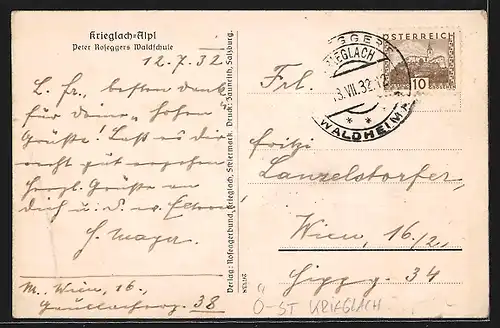 Krieglach=Alpl
Peter Roseggers Waldschule
12.7.32
L. fr. besten Dank
für deine "hohen"
Grüße! Laß es dir
recht gut ergehen
Herzl. Grüße an
dich u. d. w. Eltern
H. Mayer
M. Wien, 16.
38
Verlag: Roseggerbund, Krieglach, Steiermark. Druck: Jaunreith, Salzburg.
ÖSTERREICH
10
KRIEGLACH
13.VII.32
WALDHEIMAT
* *
Frl.
Fritzi
Lanzelstorfer,
Wien, 16/2,
34
Ö-ST KRIEGLACH